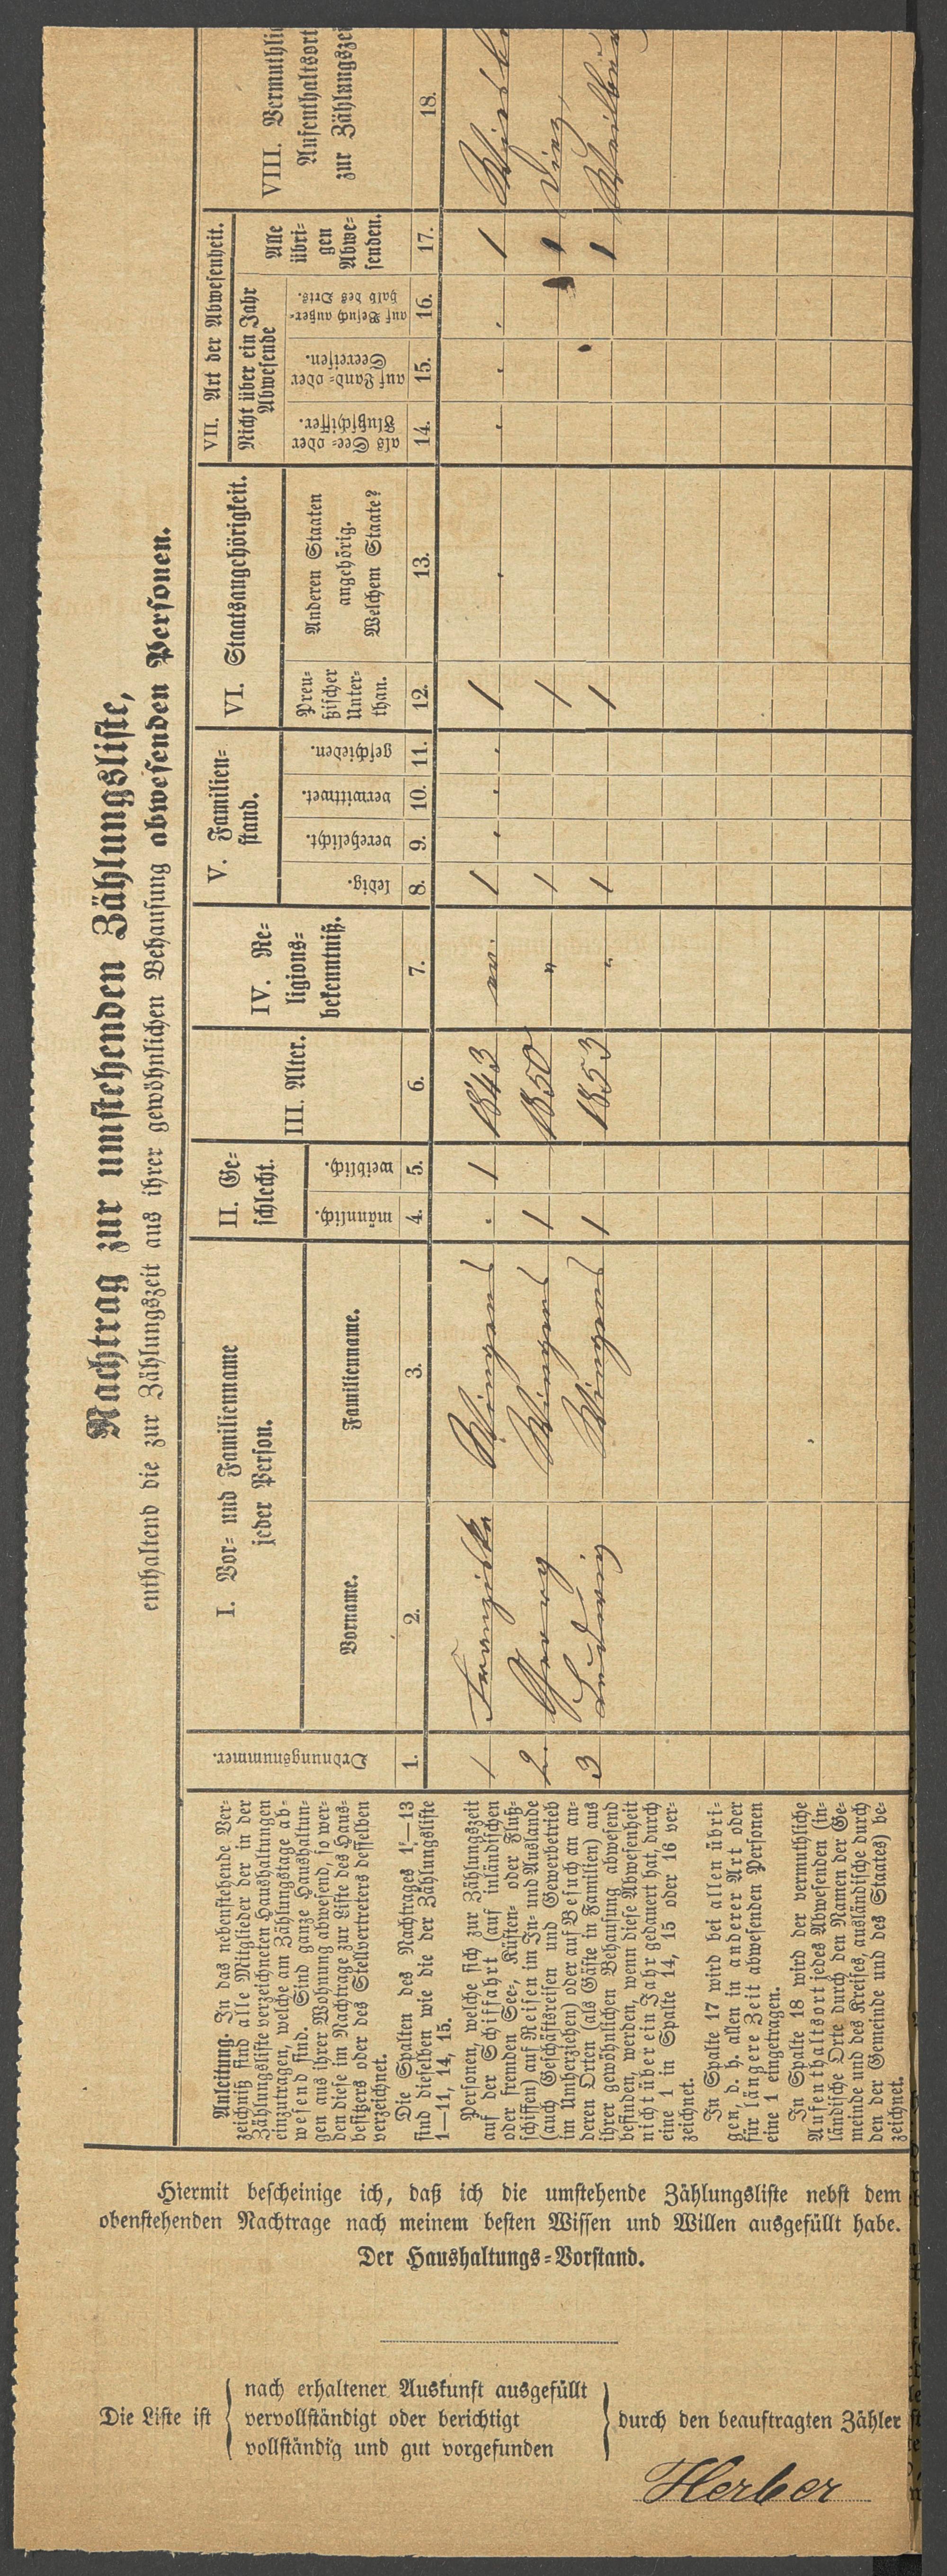 Nachtrag zur umstehenden Zählungsliste,
enthaltend die zur Zählungszeit aus ihrer gewöhnlichen Behausung abwesenden Personen.
Anleitung. In das nebenstehende Ver-
zeichniß sind alle Mitglieder der in der
Zählungsliste verzeichneten Haushaltungen
einzutragen, welche am Zählungstage ab-
wesend sind. Sind ganze Haushaltun-
gen aus ihrer Wohnung abwesend, so wer-
den diese im Nachtrage zur Liste des Haus-
besitzers oder des Stellvertreters desselben
verzeichnet.
Die Spalten des Nachtrages 1–13
sind dieselben wie die der Zählungsliste
1–11, 14, 15.
Personen, welche sich zur Zählungszeit
auf der Schiffahrt (auf inländischen
oder fremden See-, Küsten- oder Fluß-
schiffen) auf Reisen im In- und Auslande
(auch Geschäftsreisen und Gewerbetrieb
im Umherziehen) oder auf Besuch an an-
deren Orten (als Gäste in Familien) aus
ihrer gewöhnlichen Behausung abwesend
befinden, werden, wenn diese Abwesenheit
nicht über ein Jahr gedauert hat, durch
eine 1 in Spalte 14, 15 oder 16 ver-
zeichnet.
In Spalte 17 wird bei allen übri-
gen, d. h. allen in anderer Art oder
für längere Zeit abwesenden Personen
eine 1 eingetragen.
In Spalte 18 wird der vermuthliche
Aufenthaltsort jedes Abwesenden (in-
ländische Orte durch den Namen der Ge-
meinde und des Kreises, ausländische durch
den der Gemeinde und des Staates) be-
zeichnet.
Ordnungsnummer.
I. Vor- und Familienname
jeder Person.
II. Ge-
schlecht.
III. Alter.
IV. Re-
ligions-
bekenntniß.
V. Familien-
stand.
VI. Staatsangehörigkeit.
VII. Art der Abwesenheit.
Nicht über ein Jahr
Abwesende
Alle
übri-
gen
Abwe-
senden.
VIII. Vermuthlic
Aufenthaltsort
zur Zählungszei
Vorname.
Familienname.
männlich.
weiblich.
ledig.
verehelicht.
verwittwet.
geschieden.
Preu-
ßischer
Unter-
than.
Anderen Staaten
angehörig.
Welchem Staate?
als See- oder
Flußschiffer.
auf Land- oder
Seereisen.
auf Besuch außer-
halb des Orts.
1. 2. 3. 4. 5. 6. 7. 8. 9. 10. 11. 12. 13. 14. 15. 16. 17. 18.
1 Franziska Wingend . 1 1843 ev. 1 . . . 1 . . . . 1
2. Georg Wingend 1 1850 " 1 1 1 Diez,
3 Ludwig Wingend 1 1853 " 1 1 1
Hiermit bescheinige ich, daß ich die umstehende Zählungsliste nebst dem
obenstehenden Nachtrage nach meinem besten Wissen und Willen ausgefüllt habe.
Der Haushaltungs-Vorstand.
Die Liste ist
nach erhaltener Auskunft ausgefüllt
vervollständigt oder berichtigt
vollständig und gut vorgefunden
durch den beauftragten Zähler
Herber